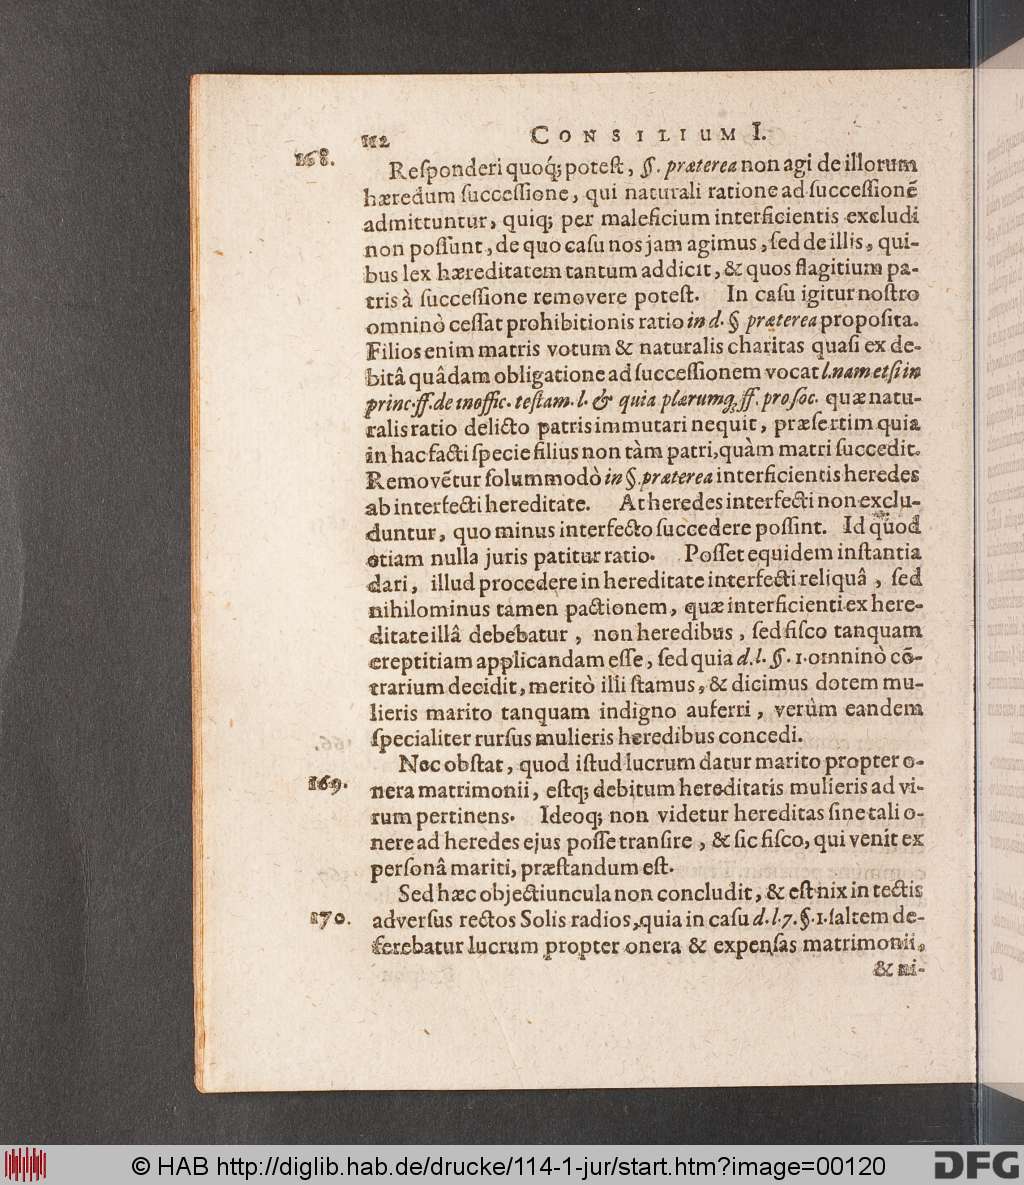 112 CONSILIUM I.
168.
Reſponderi quoq́; poteſt, §. præterea non agi de illorum
hæredum ſucceſſione, qui naturali ratione ad ſucceſſionẽ
admittuntur, quiq; per maleficium interficientis excludi
non poſſunt, de quo caſu nos jam agimus, ſed de illis, qui-
bus lex hæreditatem tantum addicit, & quos flagitium pa-
tris à ſucceſſione removere poteſt. In caſu igitur noſtro
omninò ceſſat prohibitionis ratio in d. § præterea propoſita.
Filios enim matris votum & naturalis charitas quaſi ex de-
bitâ quâdam obligatione ad ſucceſſionem vocat l. nam etſi in
princ. ff. de inoffic. teſtam. l. & quia plærumq; ff. pro ſoc. quæ natu-
ralis ratio delicto patris immutari nequit, præſertim quia
in hac facti ſpecie filius non tàm patri, quàm matri ſuccedit.
Removẽtur ſolummodò in §. præterea interficientis heredes
ab interfecti hereditate. At heredes interfecti non exclu-
duntur, quo minus interfecto ſuccedere poſſint. Id quod
etiam nulla juris patitur ratio. Poſſet equidem inſtantia
dari, illud procedere in hereditate interfecti reliquâ, ſed
nihilominus tamen pactionem, quæ interficienti ex here-
ditate illâ debebatur, non heredibus, ſed fiſco tanquam
ereptitiam applicandam eſſe, ſed quia d. l. §. 1. omninò cõ-
trarium decidit, meritò illi ſtamus, & dicimus dotem mu-
lieris marito tanquam indigno auferri, verùm eandem
ſpecialiter rurſus mulieris heredibus concedi.
Nec obſtat, quod iſtud lucrum datur marito propter o-
169.
nera matrimonii, eſtq; debitum hereditatis mulieris ad vi-
rum pertinens. Ideoq; non videtur hereditas ſine tali o-
nere ad heredes ejus poſſe tranſire, & ſic fiſco, qui venit ex
perſonâ mariti, præſtandum eſt.
Sed hæc objectiuncula non concludit, & eſt nix in tectis
170.
adverſus rectos Solis radios, quia in caſu d. l. 7. §. 1. ſaltem de-
ferebatur lucrum propter onera & expenſas matrimonii,
& ni-
© HAB http://diglib.hab.de/drucke/114-1-jur/start.htm?image=00120
DFG